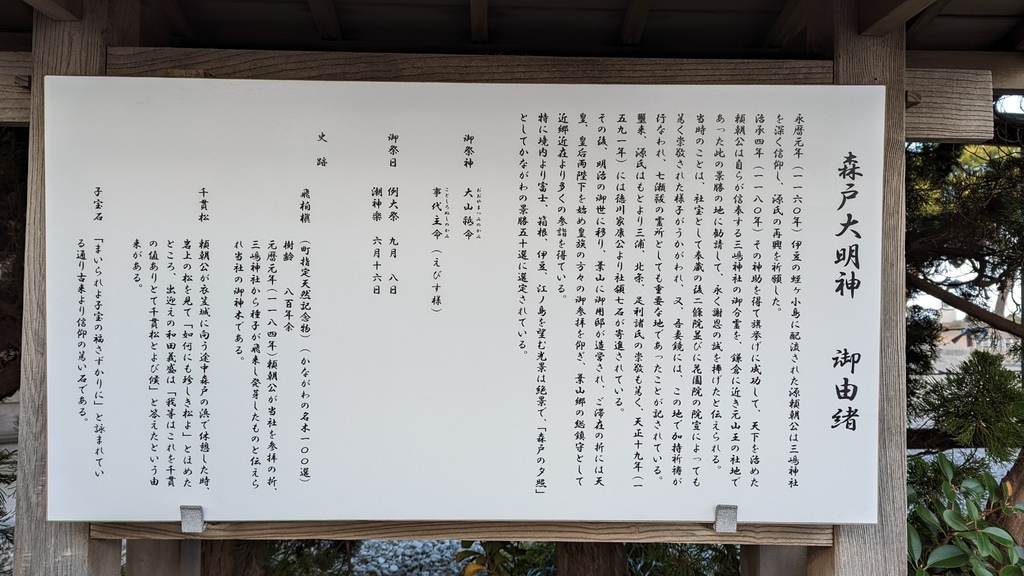 森戸大明神 御由緒
永暦元年（一一六〇年）伊豆の蛭ヶ小島に配流された源頼朝公は三嶋神社
を深く信仰し、源氏の再興を祈願した。
治承四年（一一八〇年）その神助を得て旗挙げに成功して、天下を治めた
頼朝公は自らが信奉する三嶋神社の御分霊を、鎌倉に近き元山王の社地で
あった此の景勝の地に勧請して、永く謝恩の誠を捧げたと伝えられる。
当時のことは、社宝として奉蔵の後二條院並びに花園院の院宣によっても
篤く崇敬された様子がうかがわれ、又、吾妻鏡には、この地で加持祈祷が
行なわれ、七瀬祓の霊所としても重要な地であったことが記されている。
爾来、源氏はもとより三浦、北条、足利諸氏の崇敬も篤く、天正十九年（一
五九一年）には徳川家康公より社領七石が寄進されている。
その後、明治の御世に移り、葉山に御用邸が造営され、ご滞在の折には天
皇、皇后両陛下を始め皇族の方々の御参拝を仰ぎ、葉山郷の総鎮守として
近郷近在より多くの参詣を得ている。
特に境内より富士、箱根、伊豆、江ノ島を望む光景は絶景で、「森戸の夕照」
としてかながわの景勝五十選に選定されている。
御祭神 大山祗命
おおやまつみのみこと
事代主命（えびす様）
ことしろぬしのみこと
御祭日 例大祭 九月 八日
潮神楽 六月十六日
史 跡
飛柏槇（町指定天然記念物）（かながわの名木一〇〇選）
樹齢 八百年余
元暦元年（一一八四年）頼朝公が当社を参拝の折、
三嶋神社から種子が飛来し発芽したものと伝えら
れ当社の御神木である。
千貫松 頼朝公が衣笠城に向う途中森戸の浜で休憩した時、
岩上の松を見て「如何にも珍しき松よ」とほめた
ところ、出迎えの和田義盛は「我等はこれを千貫
の値ありとて千貫松とよび候」と答えたという由
来がある。
子宝石 「まいられよ子宝の福さずかりに」と詠まれてい
る通り古来より信仰の篤い石である。